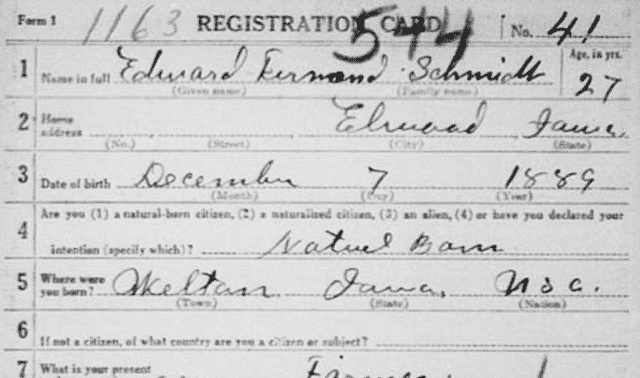 Form 1 1163 REGISTRATION CARD 544 No. 41
1 Name in full Edward Fermand Schmidt Age, in yrs. 27
(Given name) (Family name)
2 Home address Elwood Iowa
(No.) (Street) (City) (State)
3 Date of birth December 7 1889
(Month) (Day) (Year)
4 Are you (1) a natural-born citizen, (2) a naturalized citizen, (3) an alien, (4) or have you declared your
intention (specify which)? Natuel Born
5 Where were you born? Welton Iowa, USA.
(Town) (State) (Nation)
6 If not a citizen, of what country are you a citizen or subject?
7 What is your present Farmer